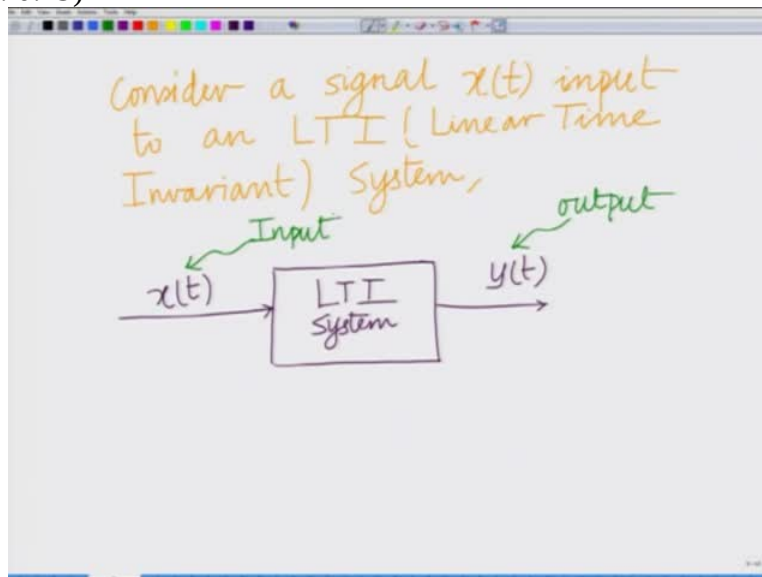 Consider a signal x(t) input
to an LTI (Linear Time
Invariant) System,
Input
output
x(t)
LTI
System
y(t)